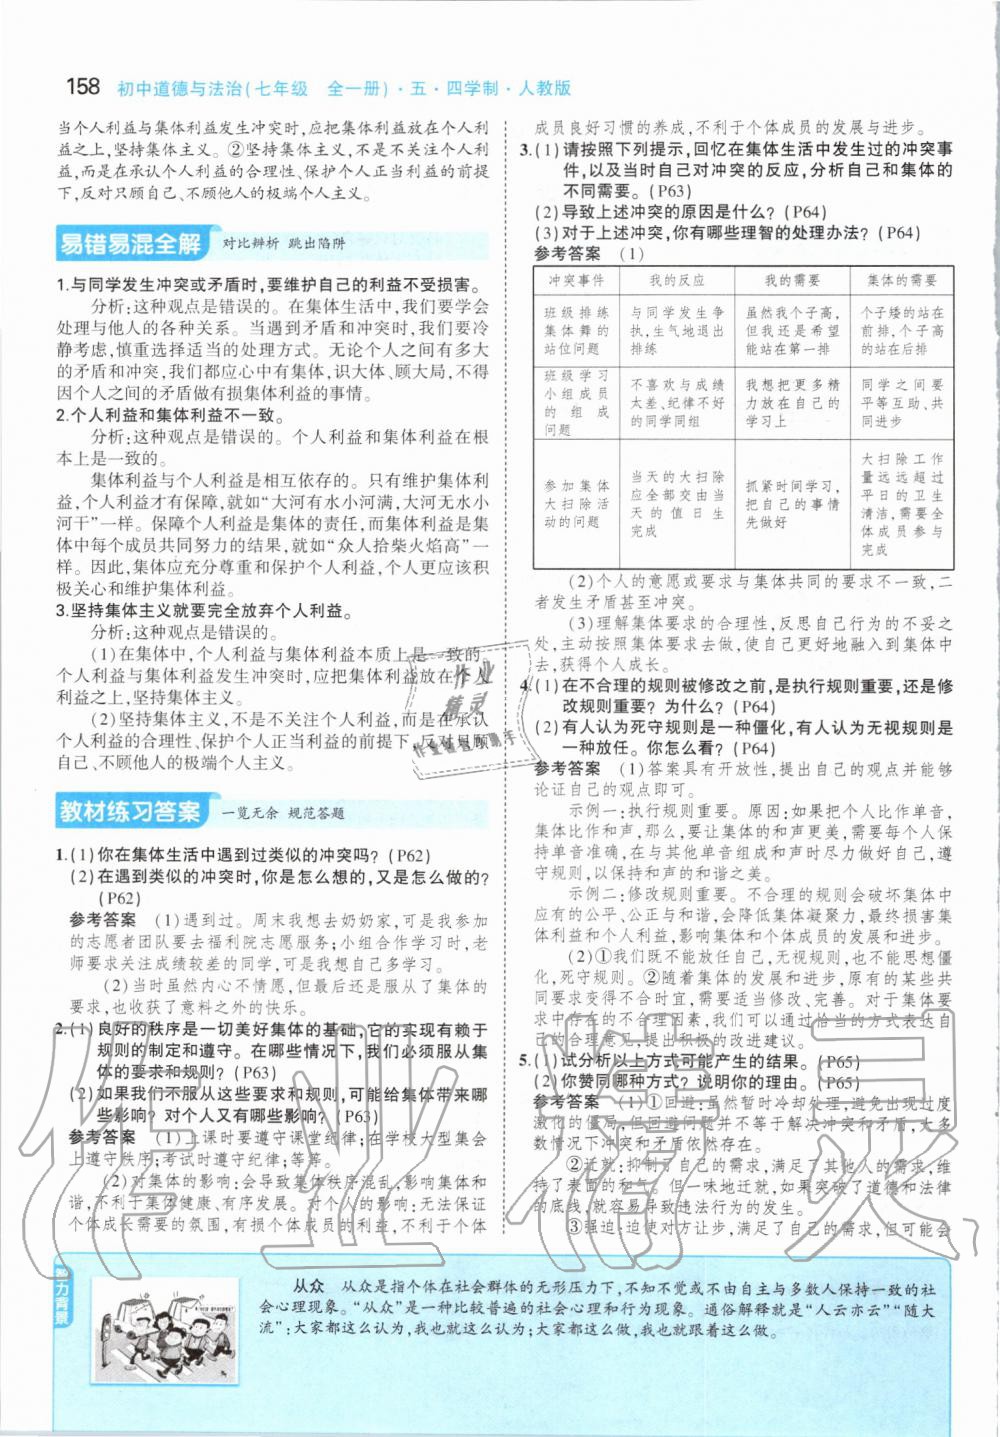 158 初中道德与法治(七年级 全一册)·五·四学制·人教版
当个人利益与集体利益发生冲突时,应把集体利益放在个人利
益之上,坚持集体主义。②坚持集体主义,不是不关注个人利
益,而是在承认个人利益的合理性、保护个人正当利益的前提
下,反对只顾自己、不顾他人的极端个人主义。
易错易混全解 对比辨析 跳出陷阱
1.与同学发生冲突或矛盾时,要维护自己的利益不受损害。
分析:这种观点是错误的。在集体生活中,我们要学会
处理与他人的各种关系。当遇到矛盾和冲突时,我们要冷
静考虑,慎重选择适当的处理方式。无论个人之间有多大
的矛盾和冲突,我们都应心中有集体,识大体、顾大局,不得
因个人之间的矛盾做有损集体利益的事情。
2.个人利益和集体利益不一致。
分析:这种观点是错误的。个人利益和集体利益在根
本上是一致的。
集体利益与个人利益是相互依存的。只有维护集体利
益,个人利益才有保障,就如“大河有水小河满,大河无水小
河干”一样。保障个人利益是集体的责任,而集体利益是集
体中每个成员共同努力的结果,就如“众人拾柴火焰高”一
样。因此,集体应充分尊重和保护个人利益,个人更应该积
极关心和维护集体利益。
3.坚持集体主义就要完全放弃个人利益。
分析:这种观点是错误的。
(1)在集体中,个人利益与集体利益本质上是一致的。
当个人利益与集体利益发生冲突时,应把集体利益放在个人
利益之上,坚持集体主义。
(2)坚持集体主义,不是不关注个人利益,而是在承认
个人利益的合理性、保护个人正当利益的前提下,反对只顾
自己、不顾他人的极端个人主义。
教材练习答案 一览无余 规范答题
1.(1)你在集体生活中遇到过类似的冲突吗?(P62)
(2)在遇到类似的冲突时,你是怎么想的,又是怎么做的?
(P62)
参考答案 (1)遇到过。周末我想去奶奶家,可是我参加
的志愿者团队要去福利院志愿服务;小组合作学习时,老
师要求关注成绩较差的同学,可是我想自己多学习。
(2)当时虽然内心不情愿,但最后还是服从了集体的
要求,也收获了意料之外的快乐。
2.(1)良好的秩序是一切美好集体的基础,它的实现有赖于
规则的制定和遵守。在哪些情况下,我们必须服从集
体的要求和规则?(P63)
(2)如果我们不服从这些要求和规则,可能给集体带来哪
些影响?对个人又有哪些影响?(P63)
参考答案 (1)上课时要遵守课堂纪律;在学校大型集会
上遵守秩序;考试时遵守纪律;等等。
(2)对集体的影响:会导致集体秩序混乱,影响集体和
谐,不利于集体健康、有序发展。对个人的影响:无法保证
个体成长需要的氛围,有损个体成员的利益,不利于个体
成员良好习惯的养成,不利于个体成员的发展与进步。
3.(1)请按照下列提示,回忆在集体生活中发生过的冲突事
件,以及当时自己对冲突的反应,分析自己和集体的
不同需要。(P63)
(2)导致上述冲突的原因是什么?(P64)
(3)对于上述冲突,你有哪些理智的处理办法?(P64)
参考答案 (1)
冲突事件 我的反应 我的需要 集体的需要
班级排练 与同学发生争 虽然我个子高, 个子矮的站在
集体舞的 执,生气地退出 但我还是希望 前排,个子高
站位问题 排练 能站在第一排 的站在后排
班级学习
小组成员 不喜欢与成绩 我想把更多精 同学之间要
的组成 太差、纪律不好 力放在自己的 平等互助、共
问题 的同学同组 学习上 同进步
大扫除工作
当天的大扫除 量远远超过
参加集体 应全部交由当 抓紧时间学习, 平日的卫生
大扫除活 天的值日生 把自己的事情 清洁,需要全
动的问题 完成 先做好 体成员参与
完成
(2)个人的意愿或要求与集体共同的要求不一致,二
者发生矛盾甚至冲突。
(3)理解集体要求的合理性,反思自己行为的不妥之
处,主动按照集体要求去做,使自己更好地融入到集体中
去,获得个人成长。
4.(1)在不合理的规则被修改之前,是执行规则重要,还是修
改规则重要?为什么?(P64)
(2)有人认为死守规则是一种僵化,有人认为无视规则是
一种放任。你怎么看?(P64)
参考答案 (1)答案具有开放性,提出自己的观点并能够
论证自己的观点即可。
示例一:执行规则重要。原因:如果把个人比作单音,
集体比作和声,那么,要让集体的和声更美,需要每个人保
持单音准确,在与其他单音组成和声时尽力做好自己,遵
守规则,以保持和声的和谐之美。
示例二:修改规则重要。不合理的规则会破坏集体中
应有的公平、公正与和谐,会降低集体凝聚力,最终损害集
体利益和个人利益,影响集体和个体成员的发展和进步。
(2)①我们既不能放任自己,无视规则,也不能思想僵
化,死守规则。②随着集体的发展和进步,原有的某些共
同要求变得不合时宜,需要适当修改、完善。对于集体要
求中存在的不合理因素,我们可以通过恰当的方式表达自
己的合理意见,提出积极的改进建议。
5.(1)试分析以上方式可能产生的结果。(P65)
(2)你赞同哪种方式?说明你的理由。(P65)
参考答案 (1)①回避:虽然暂时冷却处理,避免出现过度
激化的僵局,但回避问题并不等于解决冲突和矛盾,大多
数情况下冲突和矛盾依然存在。
②迁就:抑制了自己的需求,满足了其他人的需求,维
持了表面的和气。但一味地迁就,如果突破了道德和法律
的底线,就容易导致违法行为的发生。
③强迫:迫使对方让步,满足了自己的需求,但可能会
力背景
从众 从众是指个体在社会群体的无形压力下,不知不觉或不由自主与多数人保持一致的社
会心理现象。“从众”是一种比较普遍的社会心理和行为现象。通俗解释就是“人云亦云”“随大
流”:大家都这么认为,我也就这么认为;大家都这么做,我也就跟着这么做。
作业精灵
作业精灵